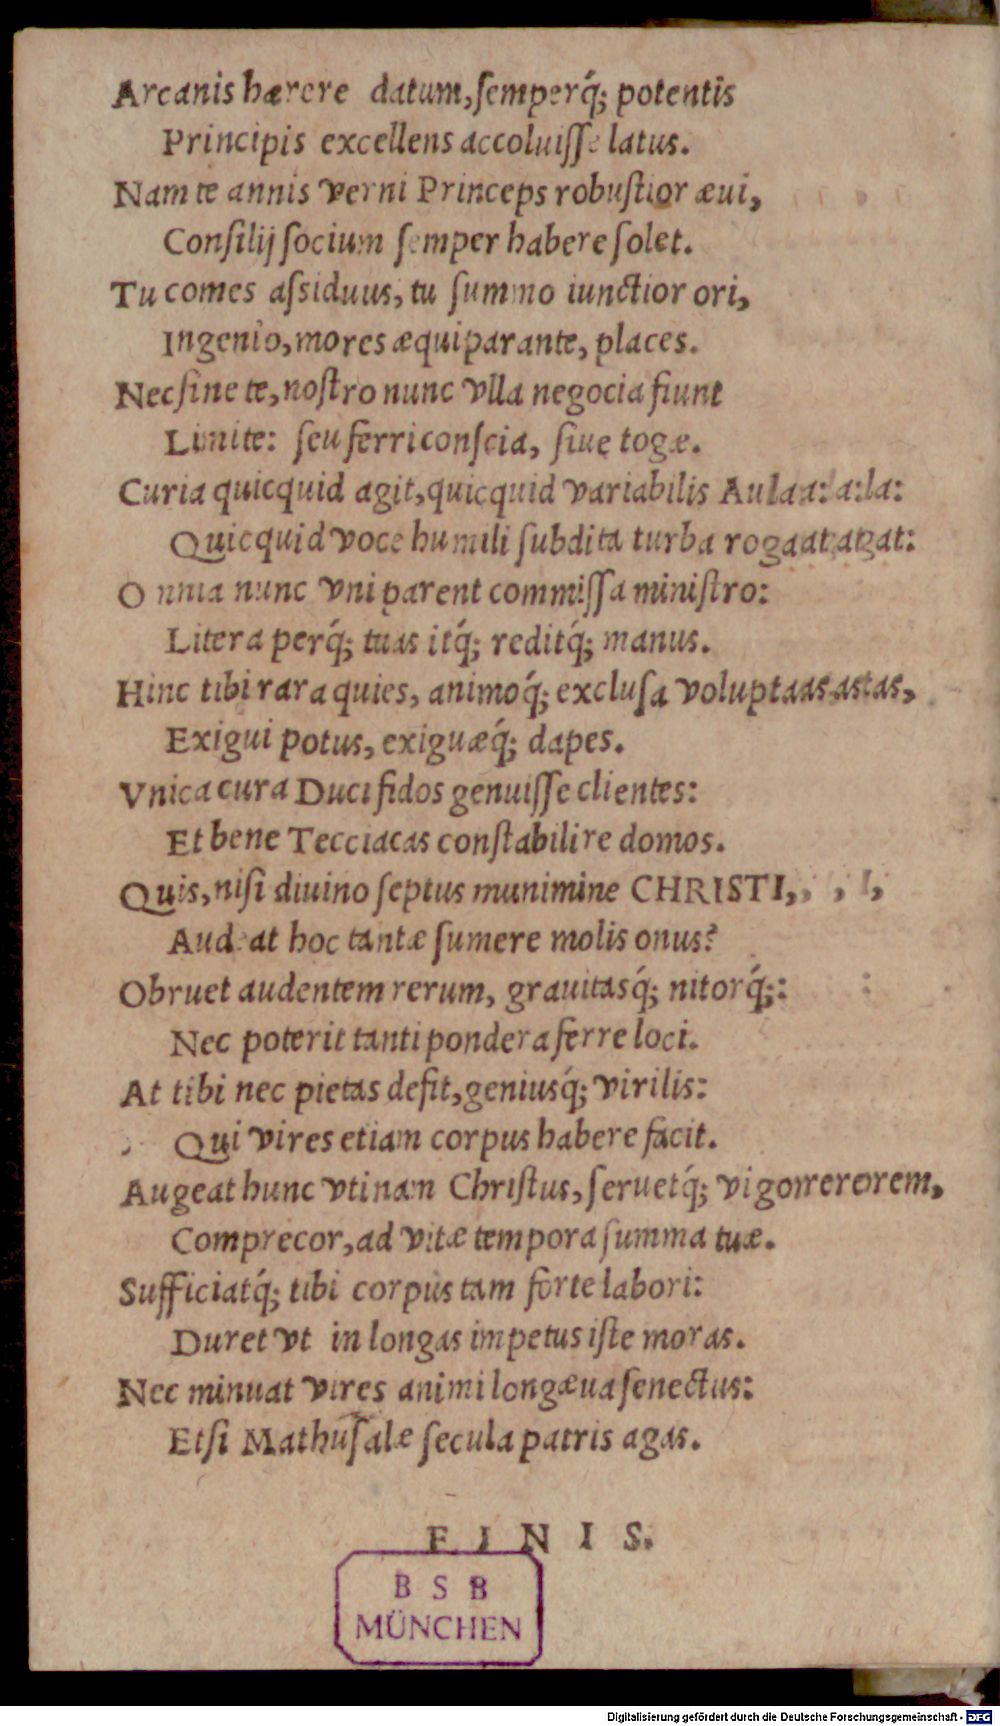 Arcanis hærere datum, semperq́; potentis
Principis excellens accoluisse latus.
Nam te annis verni Princeps robustior æui,
Consilij socium semper habere solet.
Tu comes assiduus, tu summo iunctior ori,
Ingenio, mores æquiparante, places.
Nec sine te, nostro nunc vlla negocia fiunt
Limite: seu ferri conscia, siue togæ.
Curia quicquid agit, quicquid variabilis Aula:
Quicquid voce humili subdita turba rogat:
Omnia nunc vni parent commissa ministro:
Litera perq́; tuas itq́; reditq́; manus.
Hinc tibi rara quies, animoq́; exclusa voluptas,
Exigui potus, exiguæq́; dapes.
Vnica cura Duci fidos genuisse clientes:
Et bene Tecciacas constabilire domos.
Quis, nisi diuino septus munimine CHRISTI,
Audeat hoc tantæ sumere molis onus?
Obruet audentem rerum, grauitasq́; nitorq́;:
Nec poterit tanti pondera ferre loci.
At tibi nec pietas defit, geniusq́; virilis:
Qui vires etiam corpus habere facit.
Augeat hunc vtinam Christus, seruetq́; vigorem,
Comprecor, ad vitæ tempora summa tuæ.
Sufficiatq́; tibi corpus tam forte labori:
Duret vt in longas impetus iste moras.
Nec minuat vires animi longæua senectus:
Etsi Mathusalæ secula patris agas.
FINIS.
BSB
MÜNCHEN
Digitalisierung gefördert durch die Deutsche Forschungsgemeinschaft - DFG